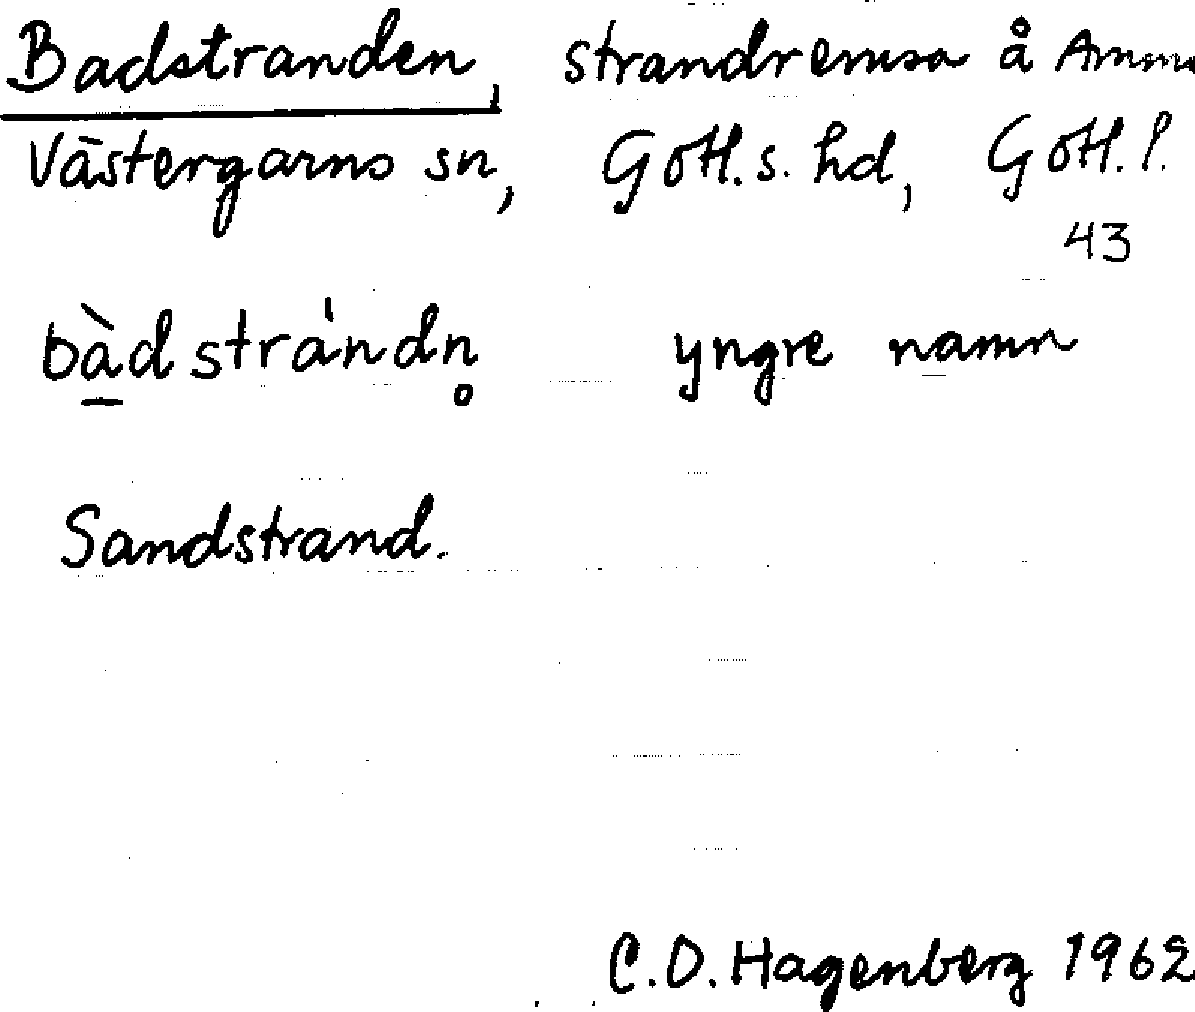 Badstranden, strandremsa å
Västergarns sn, Gotl. s. hd, Gotl. l.
43
bà̱dstrándn̥ yngre namn
Sandstrand.
C.D. Hagenberg 1962